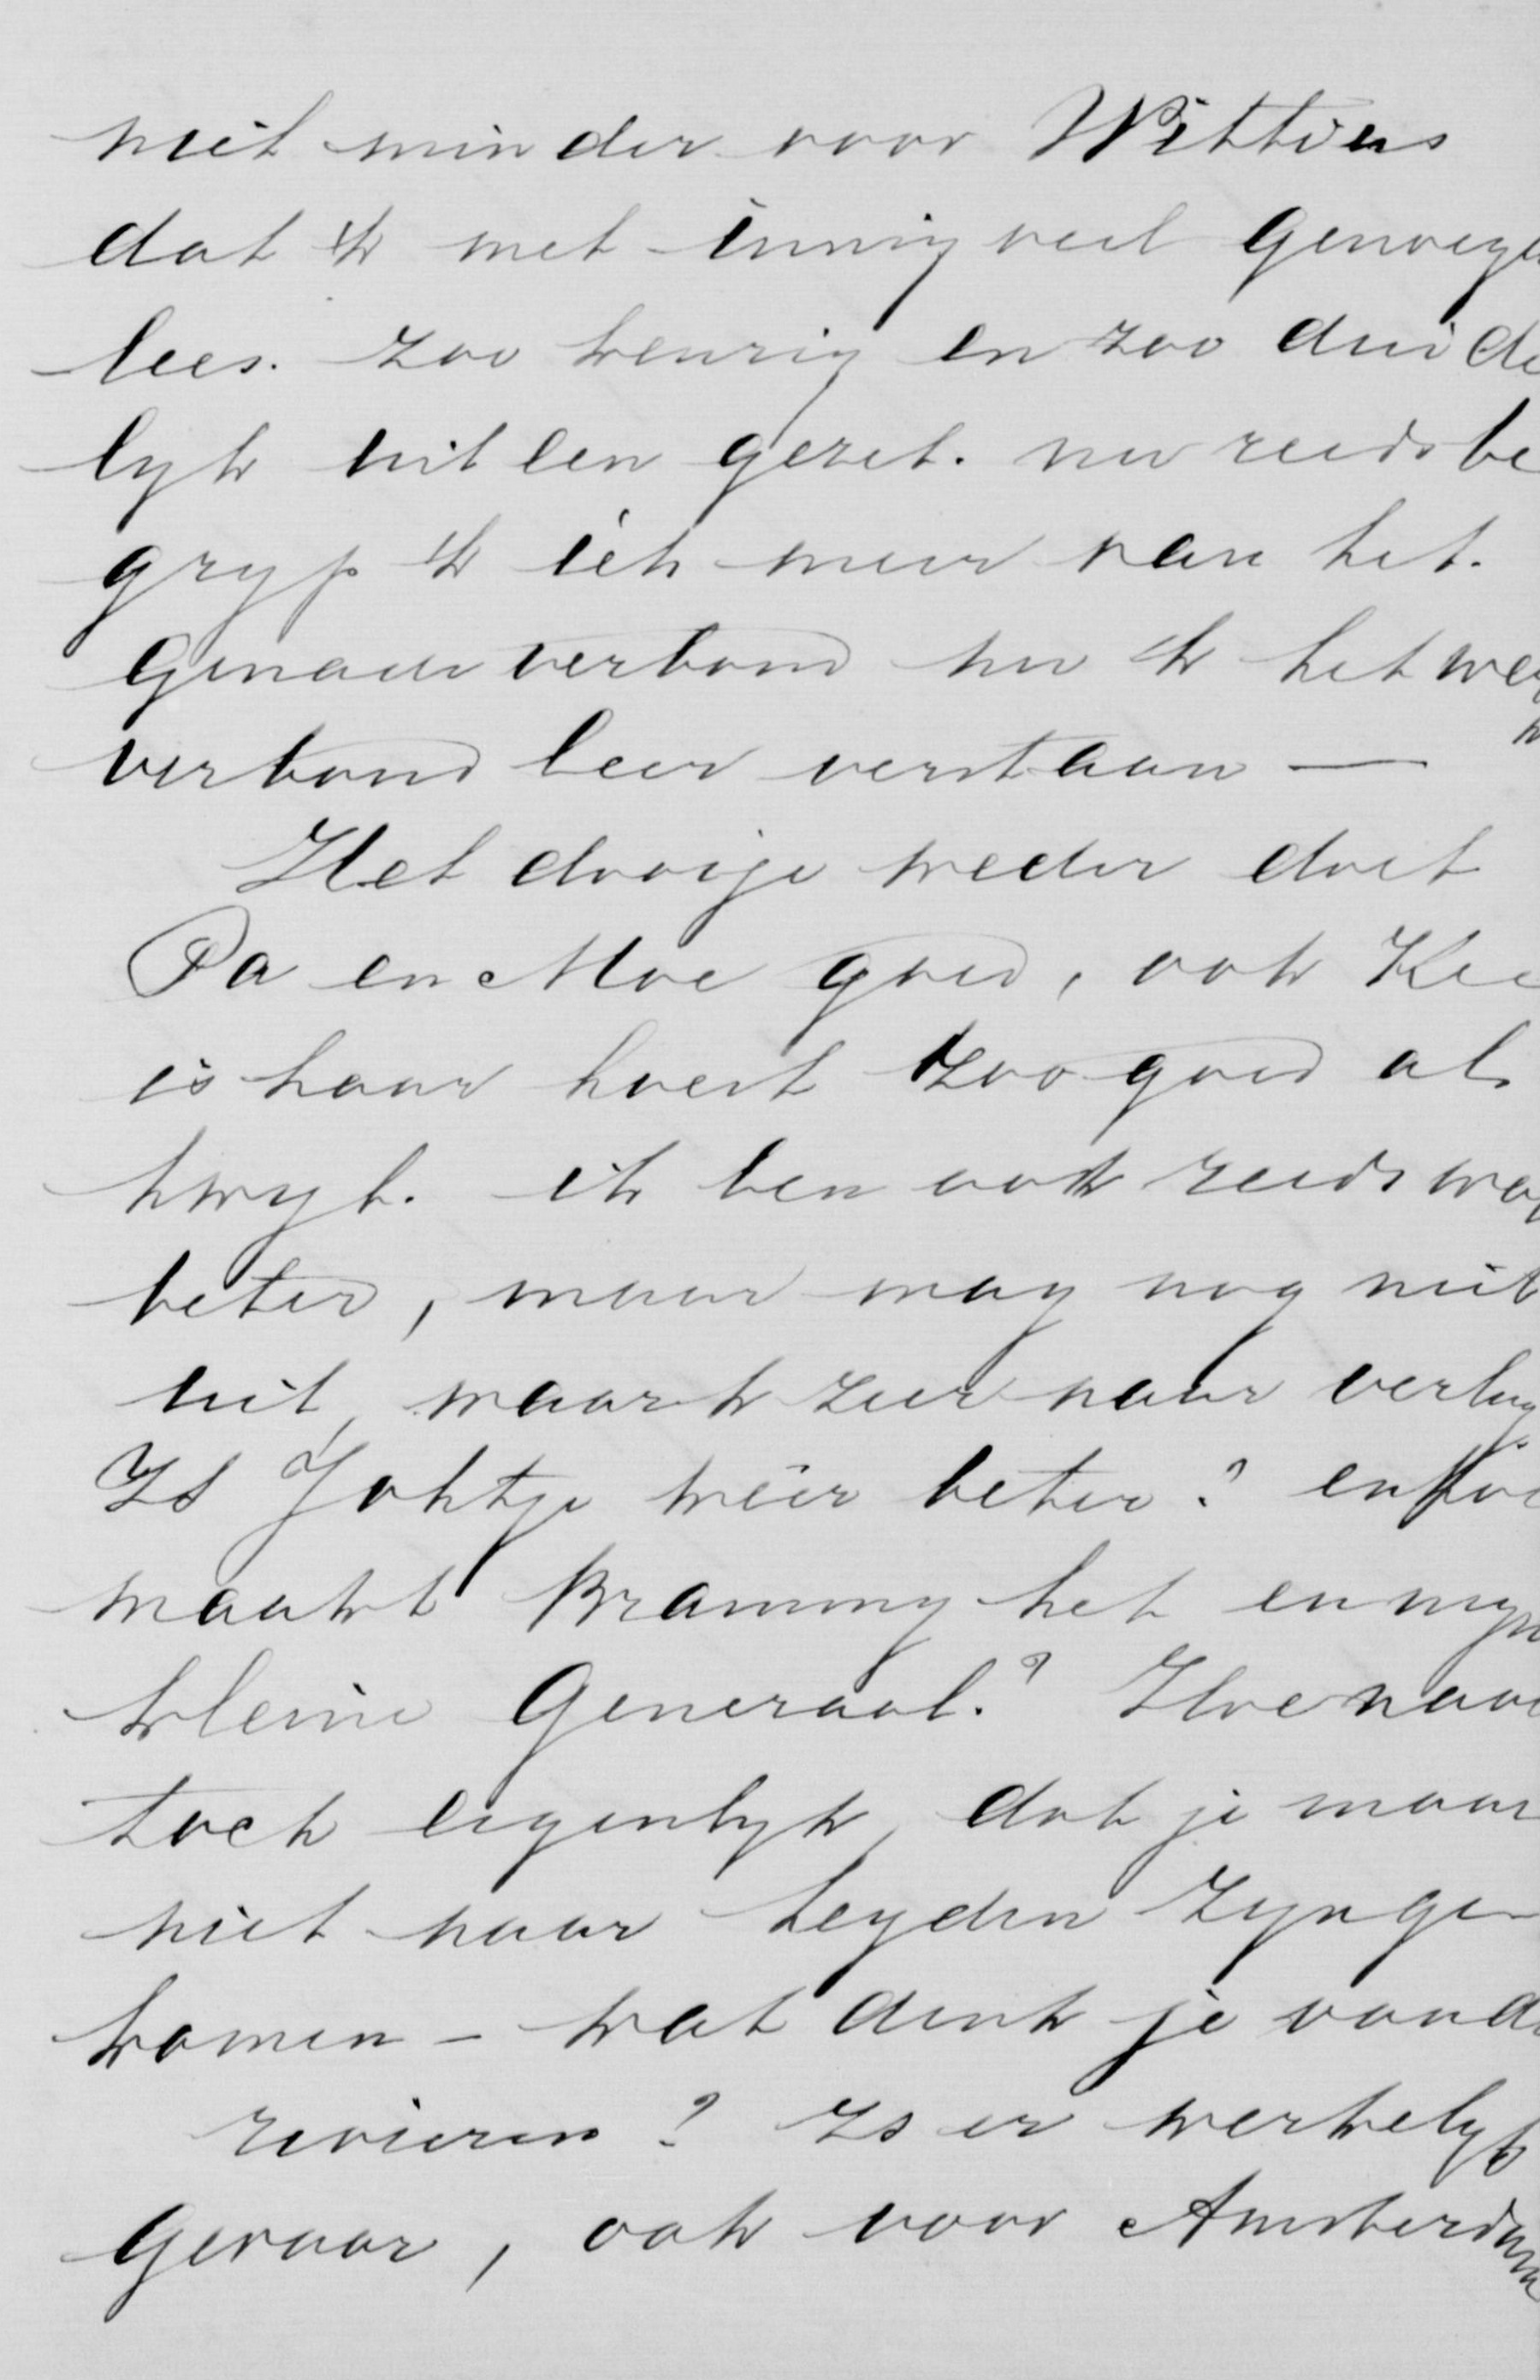 niet minder voor Wittius
dat ik met innig veel genoege
lees. zoo keurig en zoo duide
lyk uit een gezet. nu reeds be
gryp ik iets meer van het
Genade verbond nu ik het wer
verbond leer verstaan —
Het drooge weder doet
Pa en Moe goed, ook Kee
is haar hoest zoo goed als
kwyt. ik ben ook reeds wat
beter, maar mag nog niet
uit, waar ik zeer naar verlang
Is Johtje wéér beter? en hoe
maakt Brammy het en myn
kleine Generaal? Hoe naar
toch eigenlyk, dat je maar
niet naar Leyden zyn ge
komen – wat denk je van de
rivieren? Is er werkelyk
gevaar, ook voor Amsterdam